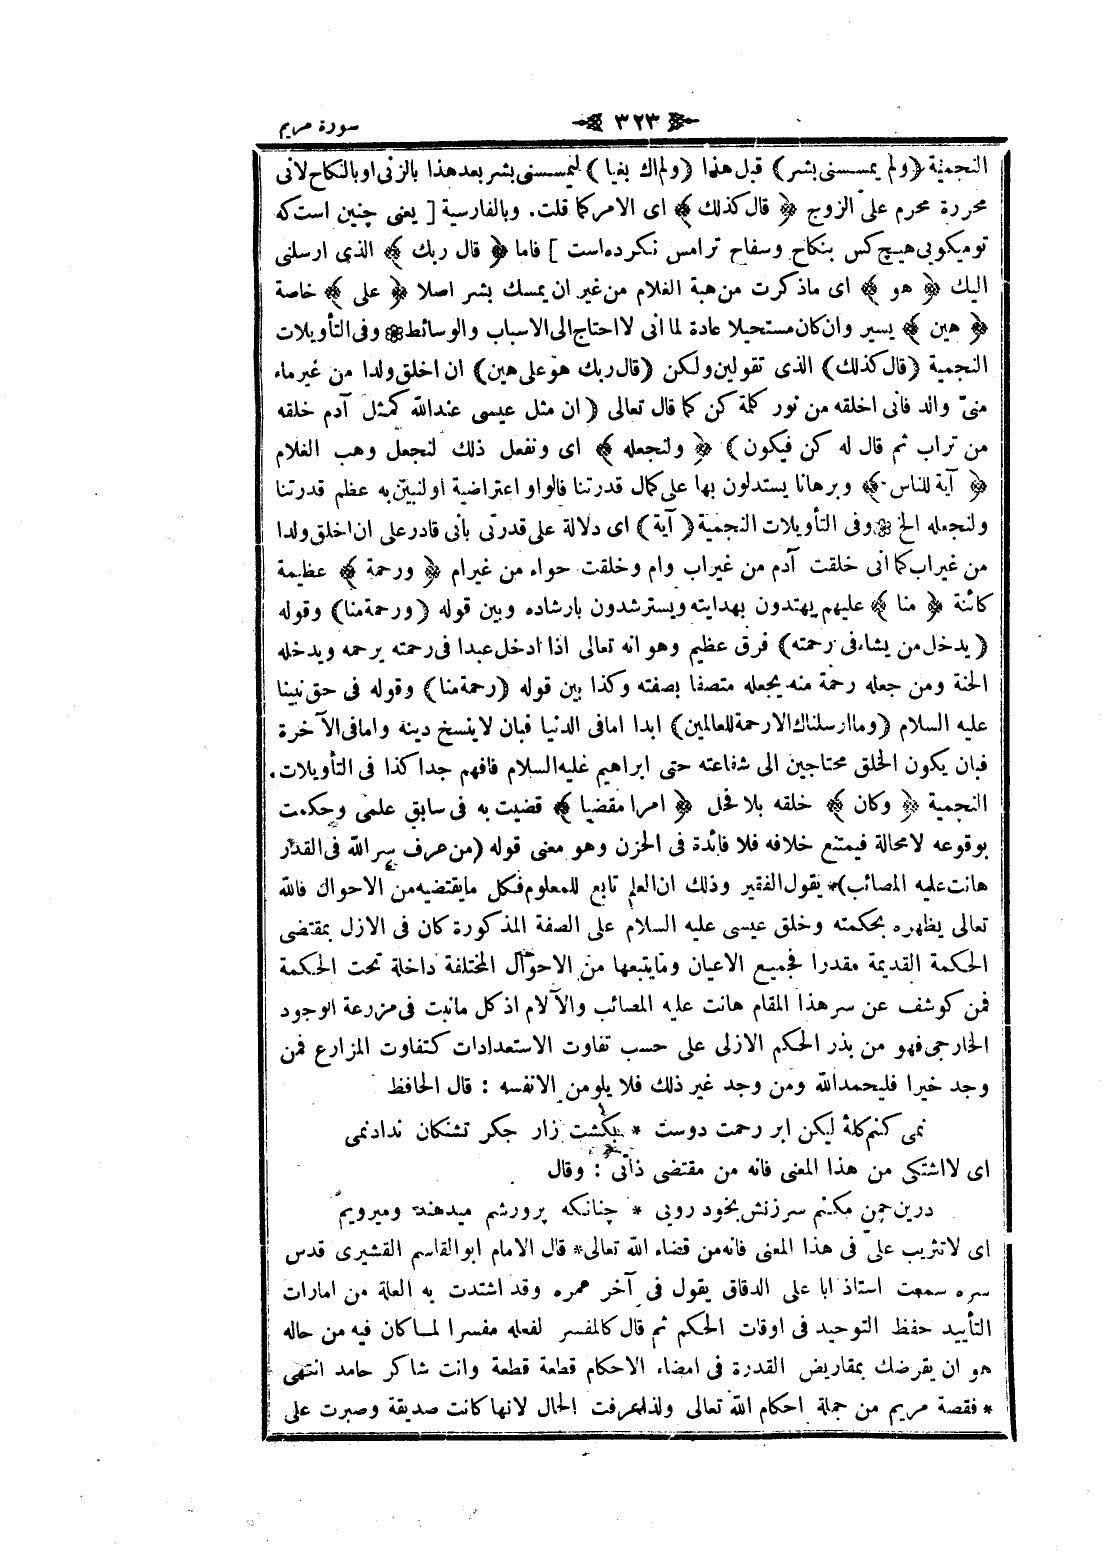 سورة مريم
٣٢٣
النجمية (ولم يمسسنى بشر) قبل هذا (ولم اك بغيا) ليمسسنى بشر بعد هذا بالزنى او بالنكاح لانى
محررة محرم علىّ الزوج ﴿ قال كذلك ﴾ اى الامر كما قلت. وبالفارسية [ يعنى چنين است كه
توميكويى هيچ كس بنكاح وسفاح ترامس نكرده است ] فاما ﴿ قال ربك ﴾ الذى ارسلنى
اليك ﴿ هو ﴾ اى ماذكرت من هبة الغلام من غير ان يمسك بشر اصلا ﴿ على ﴾ خاصة
﴿ هين ﴾ يسير وان كان مستحيلا عادة لما انى لا احتاج الى الاسباب والوسائط ۞ وفى التأويلات
النجمية (قال كذلك) الذى تقولين ولكن (قال ربك هو على هين) ان اخلق ولدا من غير ماء
منىّ والد فانى اخلقه من نور كلمة كن كما قال تعالى (ان مثل عيسى عند الله كمثل آدم خلقه
من تراب ثم قال له كن فيكون) ﴿ ولنجعله ﴾ اى ونفعل ذلك لنجعل وهب الغلام
﴿ آية للناس ﴾ وبرهانا يستدلون بها على كمال قدرتنا فالواو اعتراضية او لنبين به عظم قدرتنا
ولنجعله الخ ۞ وفى التأويلات النجمية (آية) اى دلالة على قدرتى بأنى قادر على ان اخلق ولدا
من غير اب كما انى خلقت آدم من غير اب وام وخلقت حواء من غير ام ﴿ ورحمة ﴾ عظيمة
كائنة ﴿ منا ﴾ عليهم يهتدون بهدايته ويسترشدون بارشاده وبين قوله (ورحمة منا) وقوله
(يدخل من يشاء فى رحمته) فرق عظيم وهو انه تعالى اذا ادخل عبدا فى رحمته يرحمه ويدخله
الجنة ومن جعله رحمة منه يجعله متصفا بصفته وكذا بين قوله (رحمة منا) وقوله فى حق نبينا
عليه السلام (وما ارسلناك الا رحمة للعالمين) ابدا امافى الدنيا فبان لا ينسخ دينه وامافى الآخرة
فبان يكون الخلق محتاجين الى شفاعته حتى ابراهيم عليه السلام فافهم جدا كذا فى التأويلات
النجمية ﴿ وكان ﴾ خلقه بلا فحل ﴿ امرا مقضيا ﴾ قضيت به فى سابق علمى وحكمت
بوقوعه لا محالة فيمتنع خلافه فلا فائدة فى الحزن وهو معنى قوله (من عرف سر الله فى القدر
هانت عليه المصائب)* يقول الفقير وذلك ان العلم تابع للمعلوم فكل ما يقتضيه من الاحوال فالله
تعالى يظهره بحكمته وخلق عيسى عليه السلام على الصفة المذكورة كان فى الازل بمقتضى
الحكمة القديمة مقدرا فجميع الاعيان وما يتبعها من الاحوال المختلفة داخلة تحت الحكمة
فمن كوشف عن سر هذا المقام هانت عليه المصائب والآلام اذ كل مانبت فى مزرعة الوجود
الخارجى فهو من بذر الحكم الازلى على حسب تفاوت الاستعدادات كتفاوت المزارع فمن
وجد خيرا فليحمد الله ومن وجد غير ذلك فلا يلومن الا نفسه : قال الحافظ
نمى كنم كلۀ ليكن ابر رحمت دوست * بكشت زار جكر تشنكان ندادنمى
اى لا اشتكى من هذا المعنى فانه من مقتضى ذاتى : وقال
درين چمن مكنم سرزنش بخود رويى * چنانكه پرورشم ميدهند وميرويم
اى لا تثريب علىّ فى هذا المعنى فانه من قضاء الله تعالى* قال الامام ابو القاسم القشيرى قدس
سره سمعت استاذ ابا على الدقاق يقول فى آخر عمره وقد اشتدت به العلة من امارات
التأييد حفظ التوحيد فى اوقات الحكم ثم قال كالمفسر لفعله مفسرا لما كان فيه من حاله
هو ان يقرضك بمقاريض القدرة فى امضاء الاحكام قطعة قطعة وانت شاكر حامد انتهى
* فقصة مريم من جملة احكام الله تعالى ولذا عرفت الحال لانها كانت صديقة وصبرت على